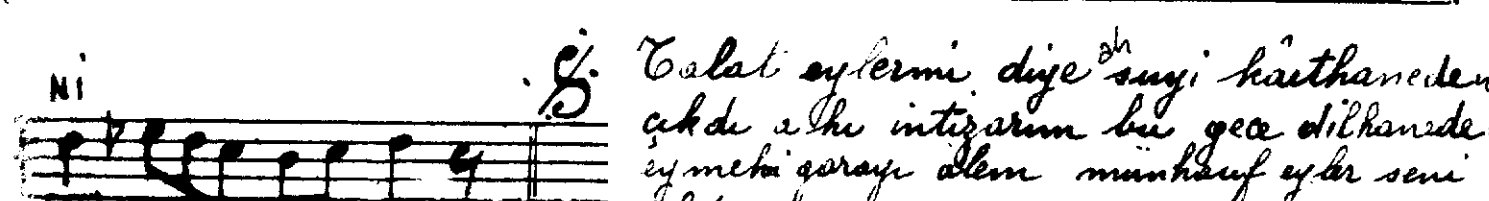 Ni
Talat eylermi diye ah suyi kâithaneden
çıkdı ahı intizarım bu gece dilhanede
ey mehi garayı âlem münhasıf eyler seni